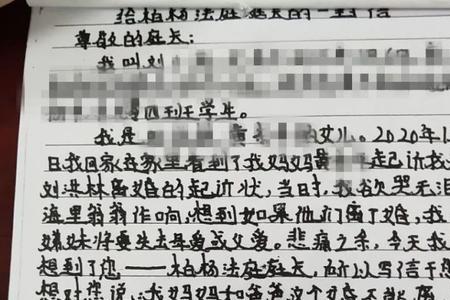 给柏杨法庭庭长的一封信
尊敬的庭长:
我叫刘
四班学生。
我是 的女儿。2020年1
日我回家在家里看到了我妈妈 起诉我
刘洪林离婚的起诉状,当日,我欲哭无泪
海里翁翁作响,想到如果他们离了婚,我
妹妹将要失去母爱或父爱。悲痛之余,今天我
想到了您——柏杨法庭庭长,所以写信于您
想对您说,我妈妈和爸爸这个婚不能离